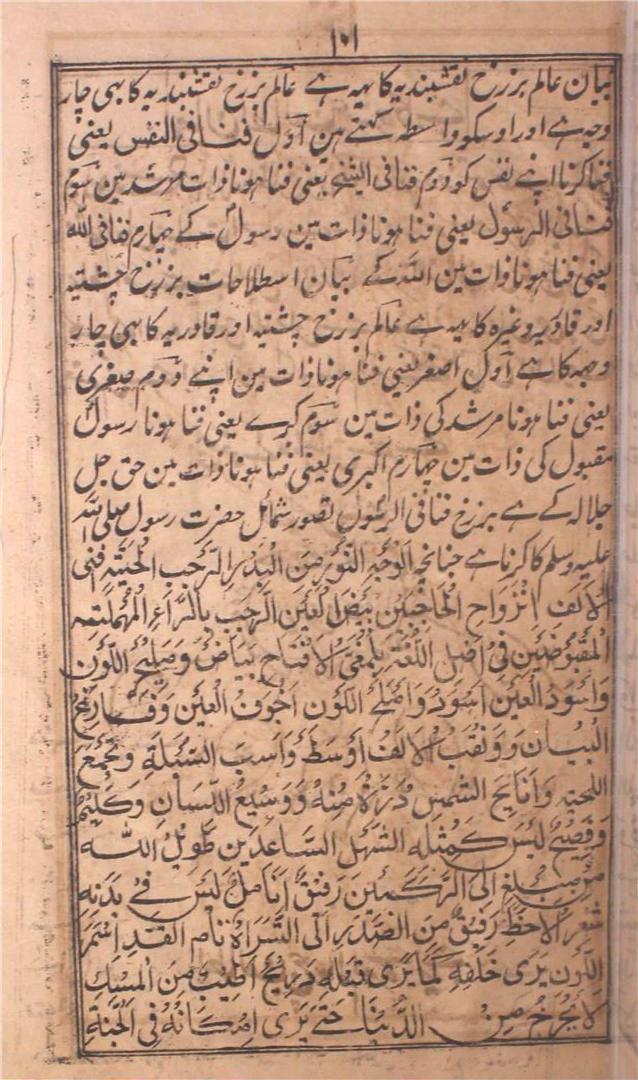 ۱۰۱
بیان عالم برزخ نقشبندیہ کا یہہ ہے عالم برزخ نقشبندیہ کا بہی چار
وجہ ہے اور اوسکو واسطہ کہتے ہین آول فنافی النفس یعنی
فنا کرنا اپنے نفس کو دوم فنافی الشیخ یعنی فنا ہونا ذات مرشد مین سوم
فنافی الرسول یعنی فنا ہونا ذات مین رسولؐ کے چہارم فنافی اللہ
یعنی فنا ہونا ذات مین اللہ کے بیان اسطلاحات برزخ چشتیہ
اور قادریہ وغیرہ کا یہہ ہے عالم برزخ چشتیہ اور قادریہ کا بہی چار
وجہہ کا ہے آول اصغر یعنی فنا ہونا ذات مین اپنے دوم صغری
یعنی فنا ہونا مرشد کی ذات مین سوم کبرے یعنی فنا ہونا رسول
مقبول کی ذات مین چہارم اکبری یعنی فنا ہونا ذات مین حق جل
جلالہ کے ہے برزخ فنافی الرسول تصور شمائل حضرت رسول صلی اللہ
علیہ وسلم کا کرنا ہے چنانچہ الوجہ النور من البدر الرجب الحیتہ فنی
الالف انزواح الحاجبین بیض العین الرجب بالراء المہملتہ
المقبوضین فی اصل اللغتہ بلمغی الافتاح بیاض وصلیح اللون
واسود العین اسود واملے اللون اجوف العین وفارغ
البیان ونقب الالف اوسط واسب السئلۃ وتجمع
اللحیتہ الشمس منہ ووسیع اللسان وکلیم
وفصیح لیس کمثلہ السہل الساعدین طویل اللہ
الی رفیق انامل لیس فی بدنہ
شعر الاخط رفیق من الصدر الی السراۃ تام القد اسمر
اللون یری خلفہ کما یری قبلہ وریح اطیب من المسک
لا یخرج من الدنیا حتے یری امکانہ فی الجنۃ